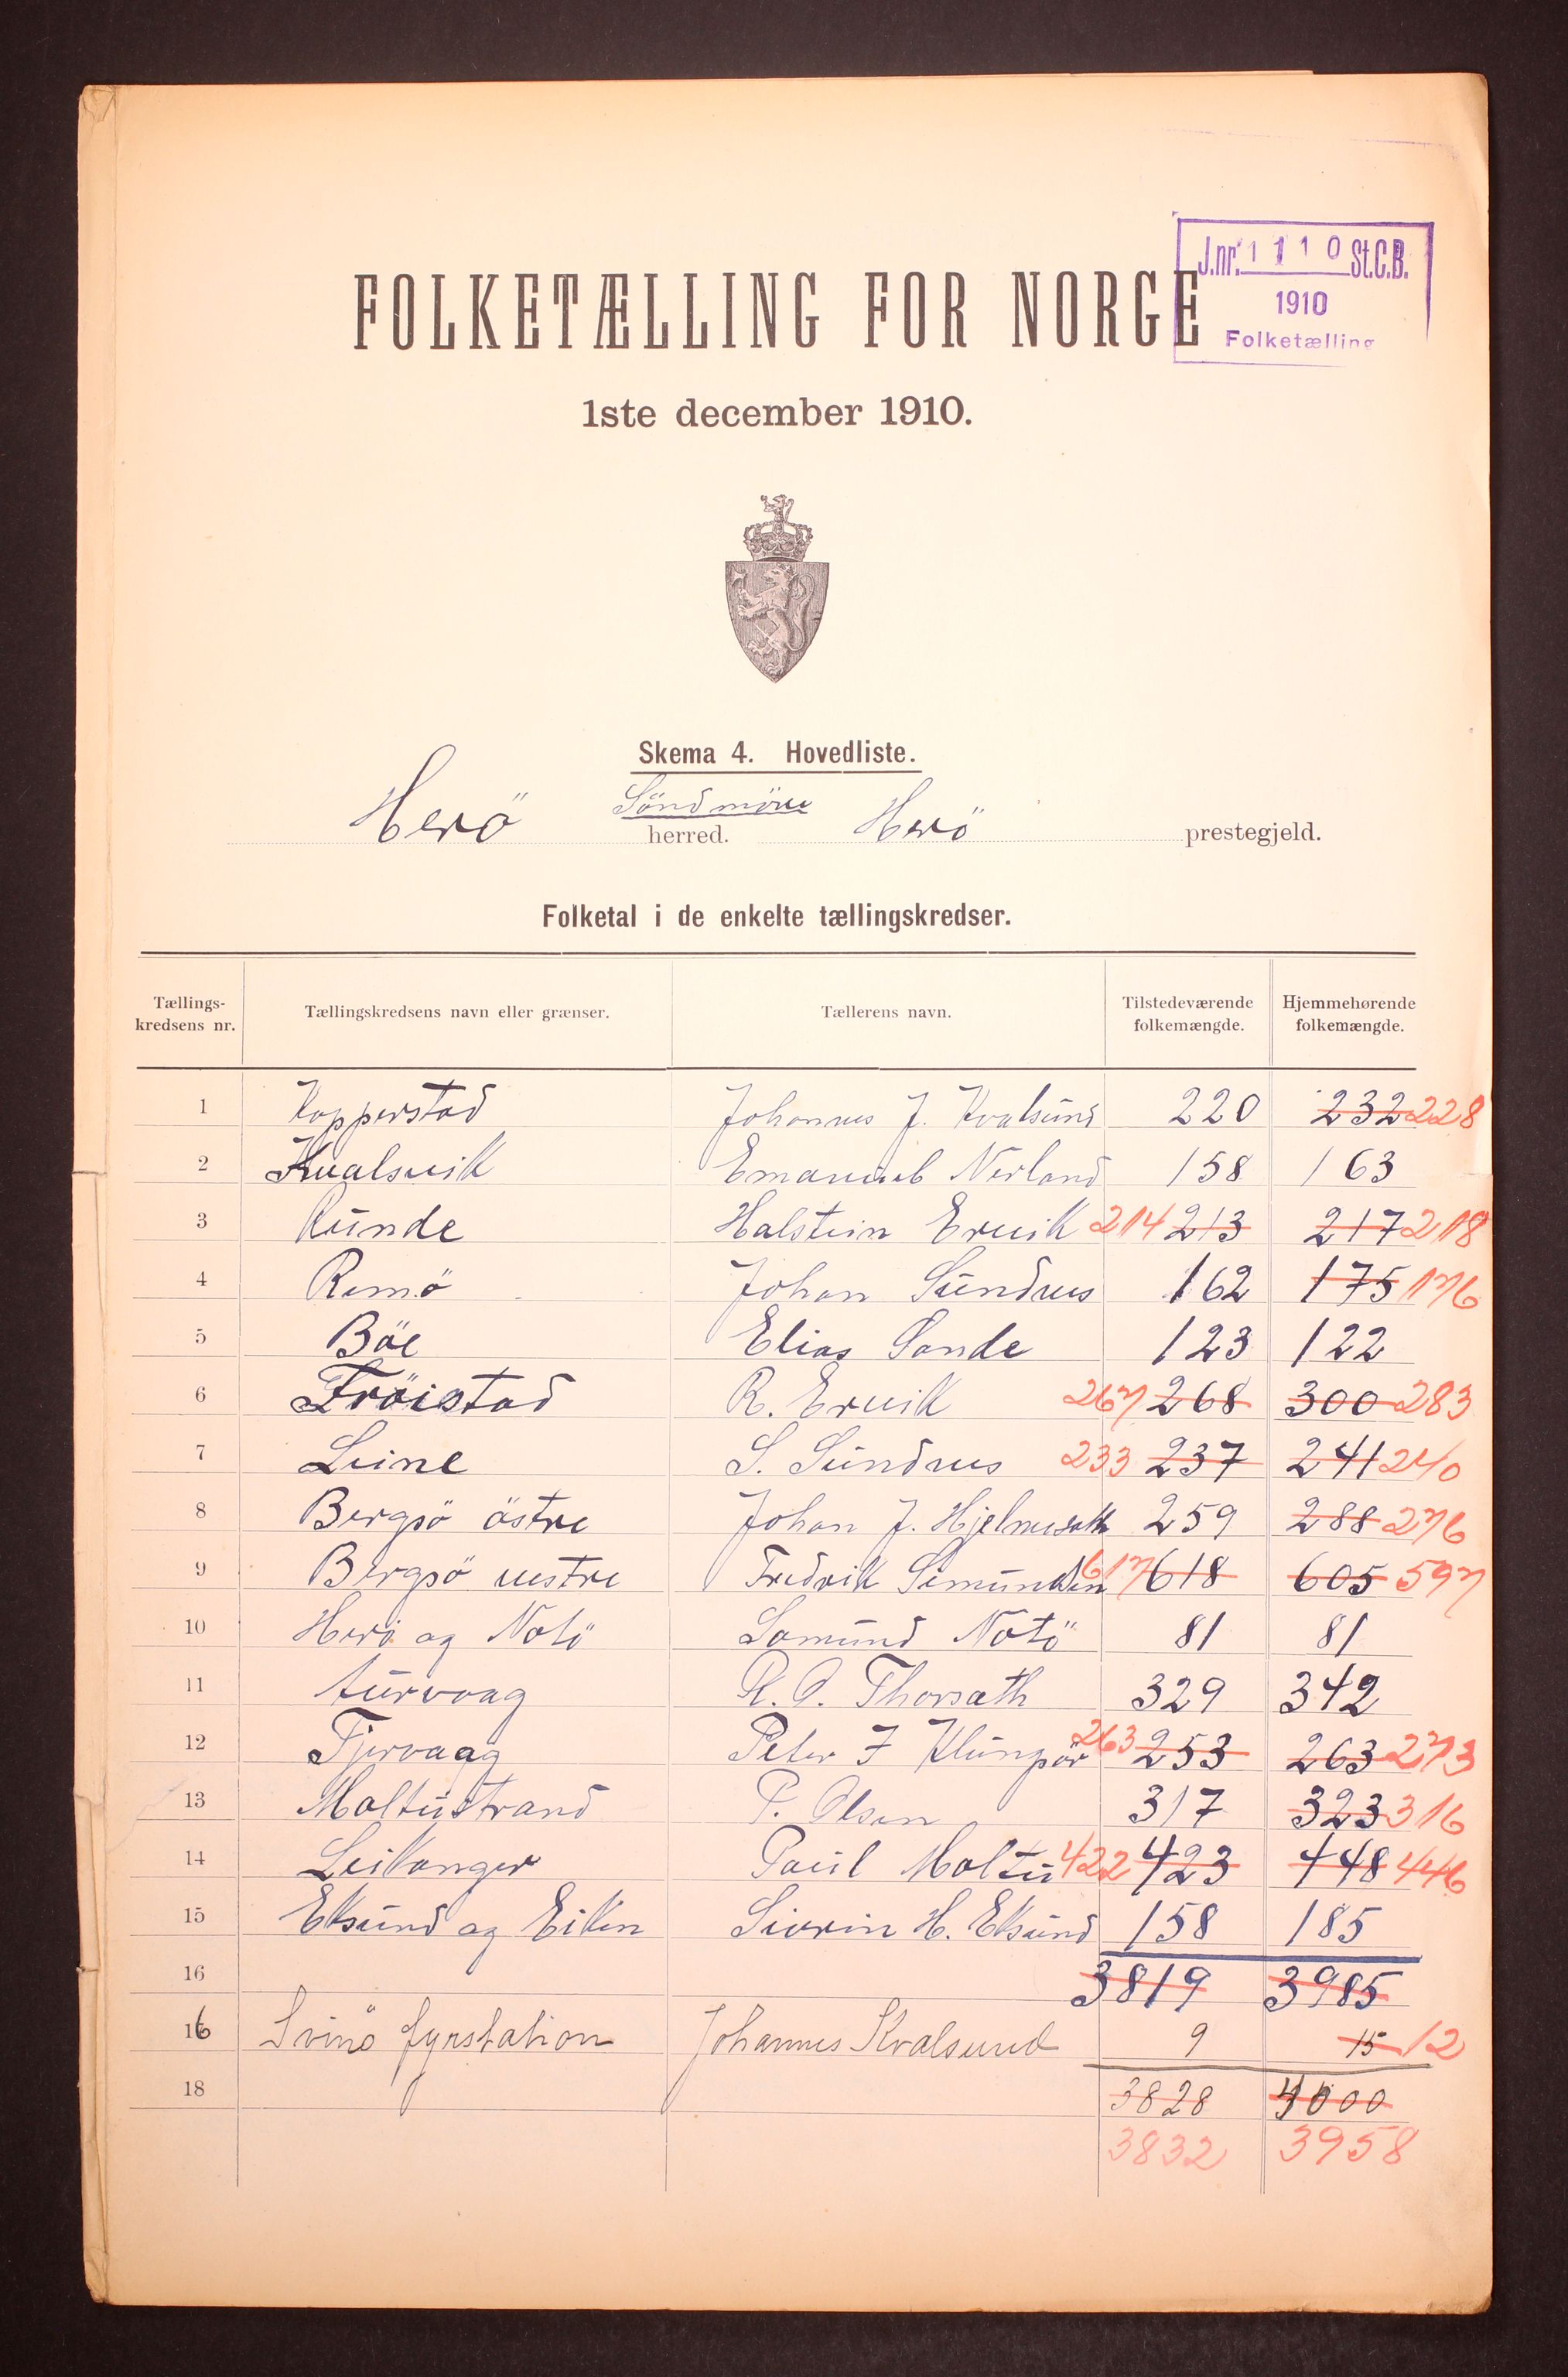 J.nr. 1110 St.C.B.
1910
Folketælling
FOLKETÆLLING FOR NORGE
1ste december 1910.
Skema 4. Hovedliste.
Herö Söndmöre herred. Herö prestegjeld.
Folketal i de enkelte tællingskredser.
Tællings-kredsens nr. Tællingskredsens navn eller grænser. Tællerens navn. Tilstedeværende folkemængde. Hjemmehørende folkemængde.
1 Kopperstad Johannes J. Kvalsund 220 232 228
2 Kvalsvik Emanuel Nerland 158 163
3 Runde Halstein Ervik 214 213 217 218
4 Remö Johan Sundnes 162 175 176
5 Böe Elias Sande 123 122
6 Fröistad R. Ervik 267 268 300 283
7 Leine S. Sundnes 233 237 241 240
8 Bergsö östre Johan J. Hjelmeseth 259 288 276
9 Bergsö vestre Fredrik Semundsen 617 618 605 597
10 Herö og Notö Samund Notö 81 81
11 turvaag O. Thorsath 329 342
12 Tjervaag Peter J Klungsör 263 253 263 273
13 Moltustrand P. Olsen 317 323 316
14 Leikanger Paul Moltu 422 423 448 446
15 Eksund og Eiken Siverin H. Eksund 158 185
16 3819 3985
16 Svinö fyrstation Johannes Kvalsund 9 15 12
18 3828 4000
3832 3958